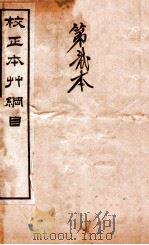 校正本艸綱目
第弍本